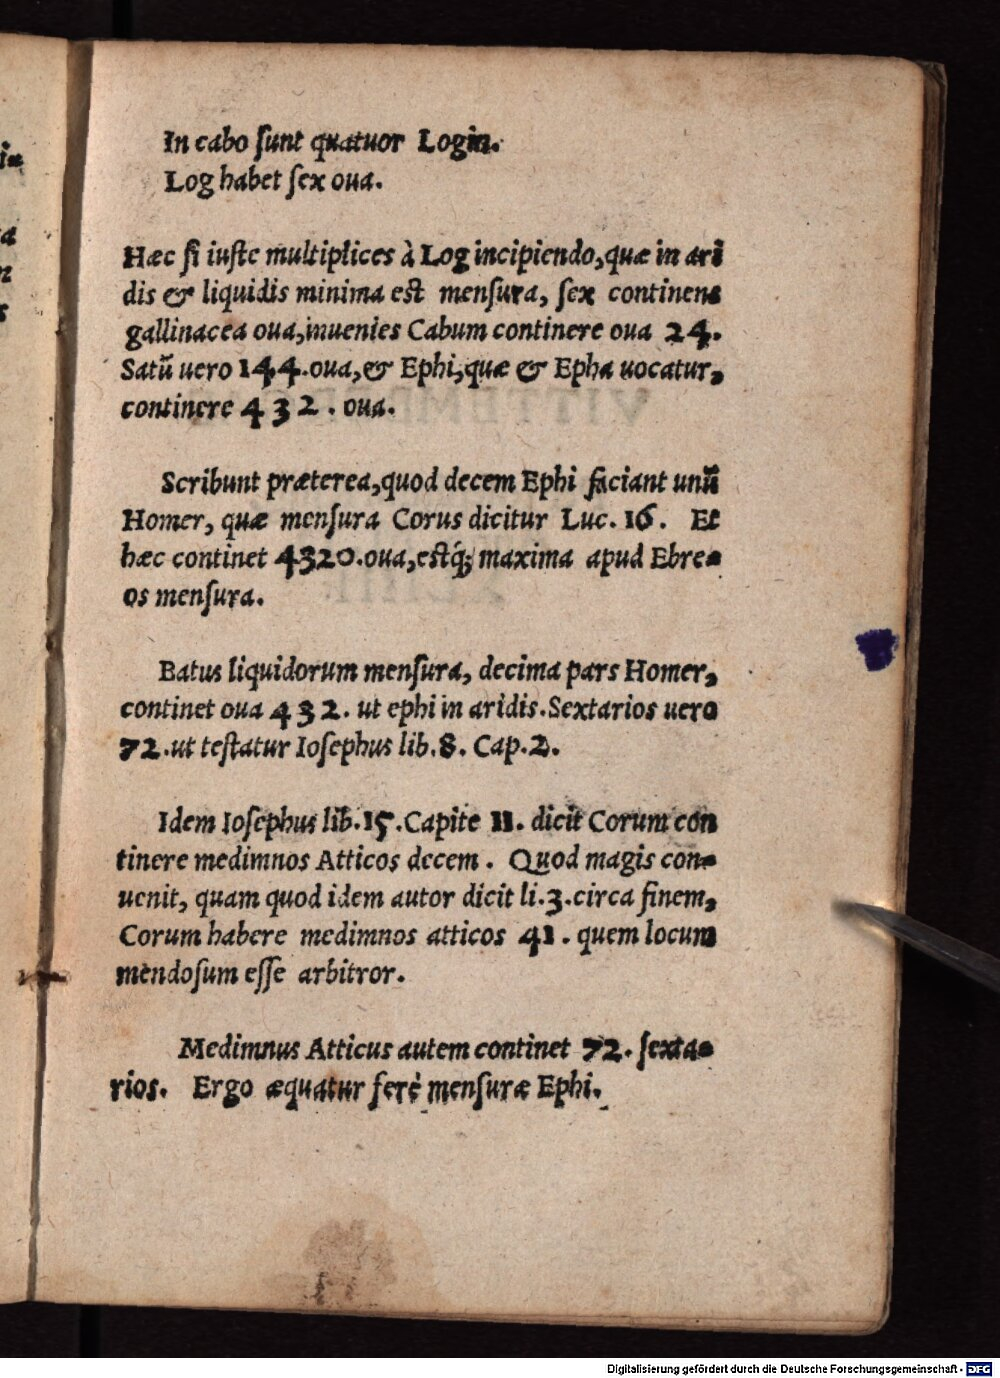 In cabo ſunt quatuor Login.
Log habet ſex oua.
Hæc ſi iuſte multiplices à Log incipiendo,quæ in ari
dis & liquidis minima est menſura, ſex continens
gallinacea oua,inuenies Cabum continere oua 24.
Satū uero 144.oua,& Ephi,quæ & Epha uocatur,
continere 432. oua.
Scribunt præterea,quod decem Ephi faciant unū
Homer, quæ menſura Corus dicitur Luc. 16. Et
hæc continet 4320.oua,eſtq́; maxima apud Ebre-
os menſura.
Batus liquidorum menſura, decima pars Homer,
continet oua 432. ut ephi in aridis.Sextarios uero
72.ut teſtatur Ioſephus lib.8. Cap.2.
Idem Ioſephus lib.15.Capite 11. dicit Corum con
tinere medimnos Atticos decem. Quod magis con-
uenit, quam quod idem autor dicit li.3.circa finem,
Corum habere medimnos atticos 41. quem locum
mendoſum eſſe arbitror.
Medimnus Atticus autem continet 72. ſexta-
rios. Ergo æquatur ferè menſuræ Ephi.
Digitalisierung gefördert durch die Deutsche Forschungsgemeinschaft - DFG